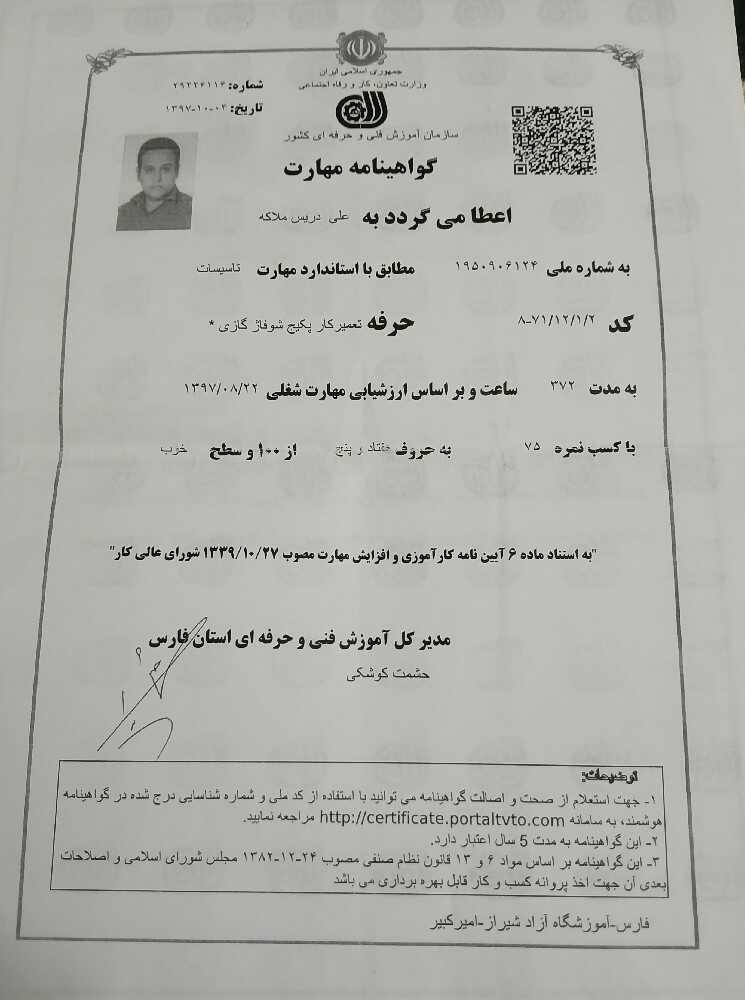 جمهوری اسلامی ایران
وزارت تعاون، کار و رفاه اجتماعی
شماره: ۲۹۲۲۶۱۱۴
تاریخ: ۱۳۹۷-۱۰-۰۴
سازمان آموزش فنی و حرفه ای کشور
گواهینامه مهارت
اعطا می گردد به علی دریس ملاکه
به شماره ملی ۱۹۵۰۹۰۶۱۲۴ مطابق با استاندارد مهارت تاسیسات
کد ۸-۷۱/۱۲/۱/۲ حرفه تعمیرکار پکیج شوفاژ گازی *
به مدت ۳۷۲ ساعت و بر اساس ارزشیابی مهارت شغلی ۱۳۹۷/۰۸/۲۲
با کسب نمره ۷۵ به حروف هفتاد و پنج از ۱۰۰ و سطح خوب
"به استناد ماده ۶ آیین نامه کارآموزی و افزایش مهارت مصوب ۱۳۳۹/۱۰/۲۷ شورای عالی کار"
مدیر کل آموزش فنی و حرفه ای استان فارس
حشمت کوشکی
توضیحات:
۱- جهت استعلام از صحت و اصالت گواهینامه می توانید با استفاده از کد ملی و شماره شناسایی درج شده در گواهینامه
هوشمند، به سامانه http://certificate.portaltvto.com مراجعه نمایید.
۲- این گواهینامه به مدت 5 سال اعتبار دارد.
۳- این گواهینامه بر اساس مواد ۶ و ۱۳ قانون نظام صنفی مصوب ۲۴-۱۲-۱۳۸۲ مجلس شورای اسلامی و اصلاحات
بعدی آن جهت اخذ پروانه کسب و کار قابل بهره برداری می باشد
فارس-آموزشگاه آزاد شیراز-امیرکبیر